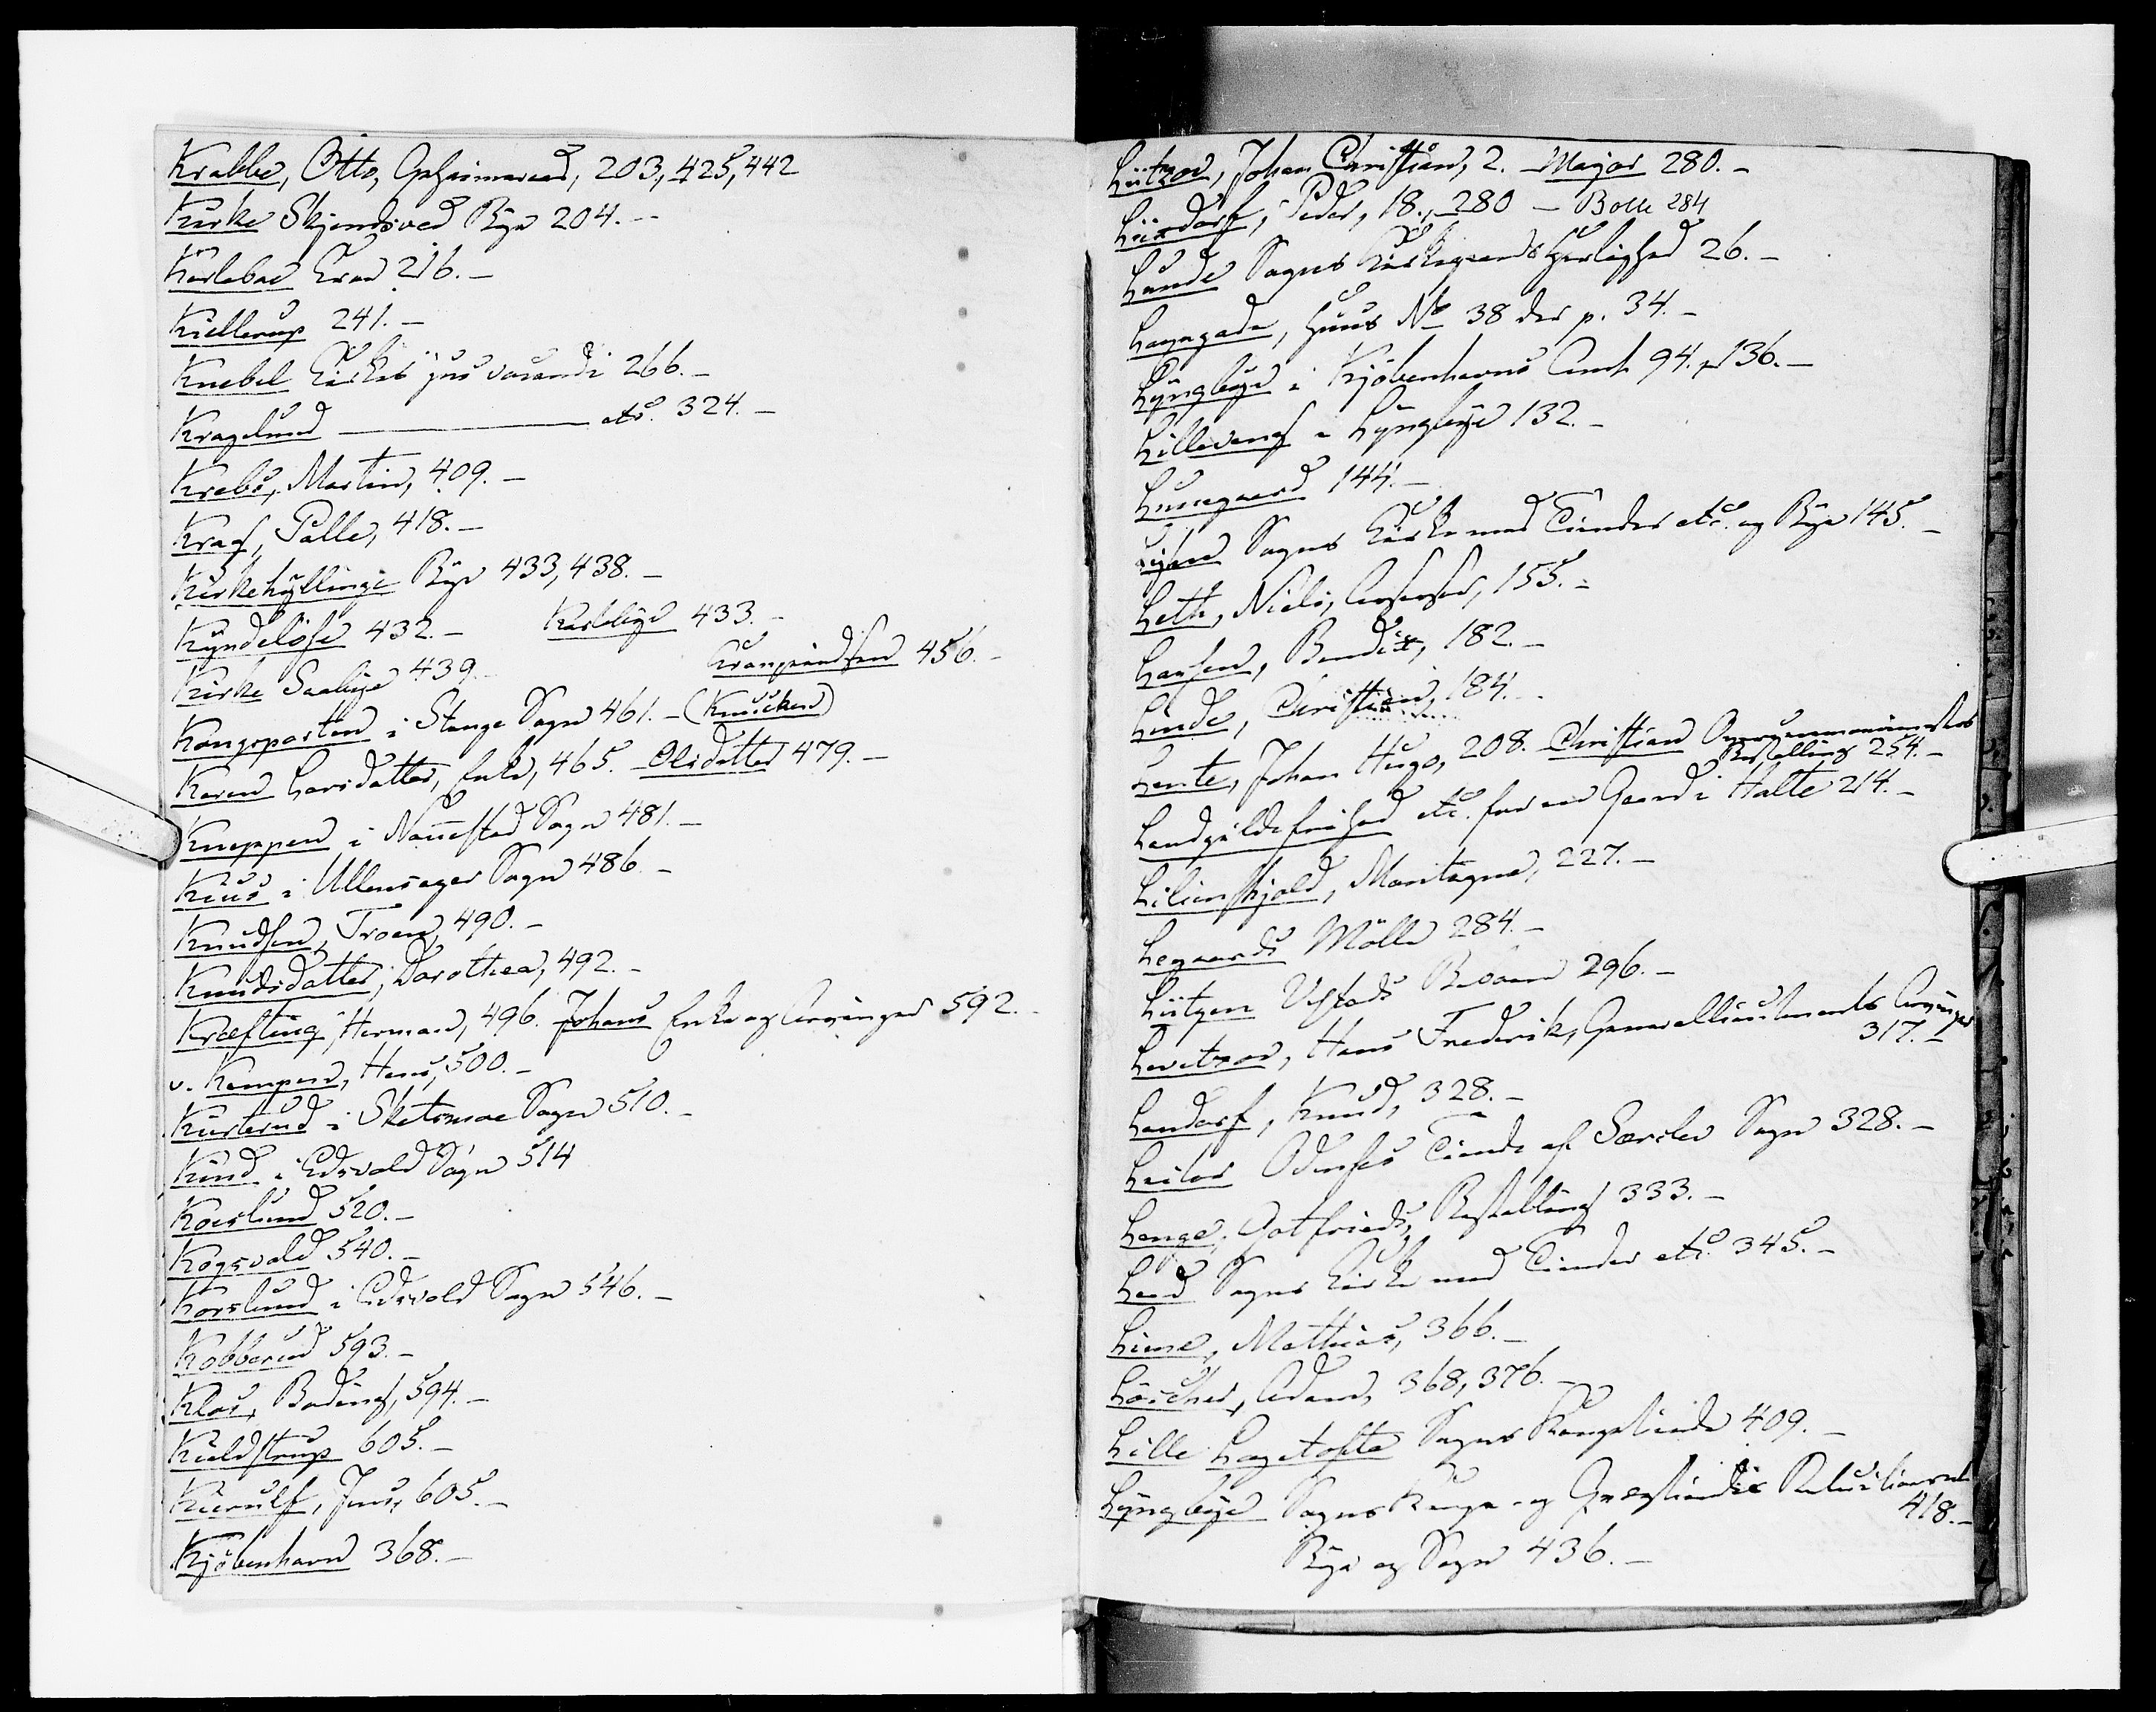 Krabbe, Otto, Geheimeraad, 203, 425, 442
Kirke Skjendsved Bye 204. -
Karleboe Krad 216. -
Kiellerup 241. -
Knebel Kirkes jus vocandi 266. -
Kragelund etc. 324. -
Krebs, Martin, 409. -
Krag, Palle, 418. -
Kirkehyllinge Bye 433, 438. -
Kyndelöse 432. - Karlebye 433. -
Kirke Saabye 439. - 456. -
Kongsparten i Stange Sogn 461. - (Knuchen)
Karen Larsdatter, Enke, 465. - Olsdatter 479. -
Kneppen i Nannestad Sogn 481. -
Kius i Ullensager Sogn 486. -
Knudsen, Troen, 490. -
Knudsdatter, Dorothea, 492. -
Kræfting, Herman, 496. Johans Enke og Arvinger 592. -
v. Kempen, Hans, 500. -
Kurterud i Sketsmoe Sogn 510. -
Kind i Edsvold Sogn 514
Koerslund 520. -
Kogsvold 540. -
Korslund i Edsvold Sogn 546. -
Kobberud 593. -
Klos, Boding, 594. -
Kieldstrup 605. -
Kierulf, Jens, 605. -
Kjöbenhavn 368. -
Lützow, Johan Christian, 2. - Major 280. -
Lüxdorf, Peder, 18., 280 - Bolle 284
Lunde Sogns Kirkegaards Herlighed 26. -
Laxegade, Huus No 38 der p. 34. -
Lyngbye i Kjöbenhavns Amt 94. 136. -
Lillevang i Lyngbye 132. -
Lunegaard 144. -
Sogns Kirke med Tiender etc. og Bye 145. -
Leth, Niels, Assessor, 155. -
Laysen, Bendix, 182. -
Linde, Christian, 184. -
Lente, Johan Hugo, 208. Christian
Bestalling 254. -
Landgildefrihed etc. for en Gaard i Halte 214. -
Lilienskjold, Montagne, 227. -
Legaards Mölle 284. -
Lütgen Ustads Bevaan 296. -
Levetzow, Hans Frederik, Generallieutenants Arvinger
317. -
Landorf, Knud, 328. -
Leilos Odenses Tiende af Særslev Sogn 328. -
Lange, Gotfrieds, Bestalling 333. -
Lend Sogns Kirke med Tiender etc. 345. -
Lime, Mathias, 366. -
Löscher, Adam, 368, 376. -
Lille Lagetofte Sogns Kongetiende 409. -
Lyngbye Sogns Konge- og
418. -
Bye og Sogn 436. -